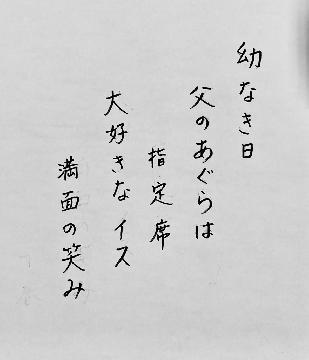 幼なき日
父のあぐらは
指定席
大好きなイス
満面の笑み